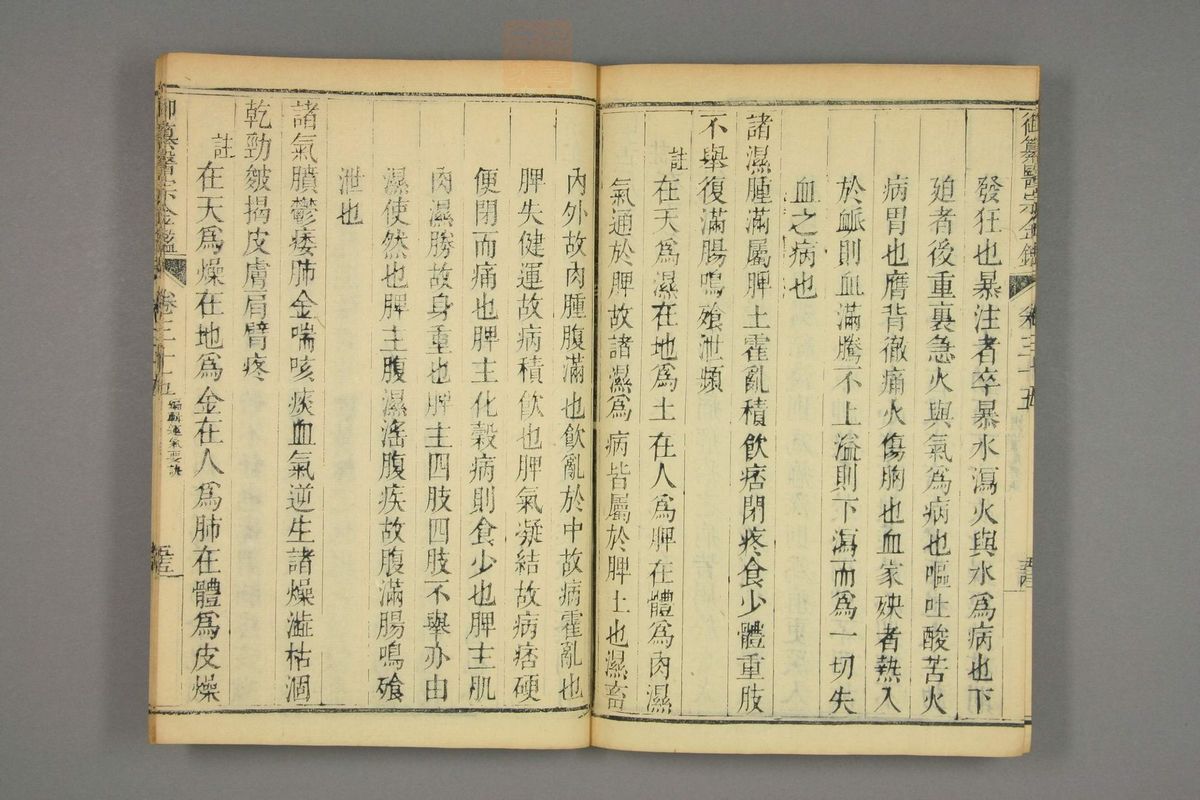 御纂醫宗金鑑 卷三十五
發狂也暴注者卒暴水瀉火與水爲病也下
廹者後重裏急火與氣爲病也嘔吐酸苦火
病胃也膺背徹痛火傷胸也血家殃者熱入
於䘑則血滿騰不上溢則下瀉而爲一切失
血之病也
諸濕腫滿屬脾土霍亂積飲痞閉疼食少體重肢
不舉復滿腸鳴飧泄頻
註在天爲濕在地爲土在人爲脾在體爲肉濕
氣通於脾故諸濕爲病皆屬於脾土也濕畜
內外故肉腫腹滿也飲亂於中故病霍亂也
脾失健運故病積飲也脾氣凝結故病痞硬
便閉而痛也脾主化穀病則食少也脾主肌
肉濕勝故身重也脾主四肢四肢不舉亦由
濕使然也脾主腹濕滛腹疾故腹滿腸鳴飧
泄也
諸氣膹鬱痿肺金喘咳痰血氣逆生諸燥澁枯涸
乾勁皴揭皮膚肩臂疼
註在天爲燥在地爲金在人爲肺在體爲皮燥
御纂醫宗金鑑 卷三十五 編輯運氣要訣